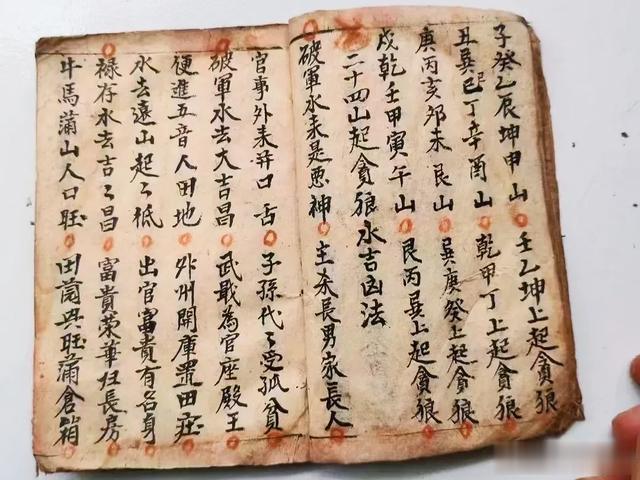 子癸乙辰坤甲山 壬乙坤上起貪狼
丑巽巳丁辛酉山 乾甲丁上起貪狼
庚丙亥卯未艮山 巽庚癸上起貪狼
戌乾壬甲寅午山 艮丙巽上起貪狼
二十四山起貪狼水吉凶法
破軍水未是悪神 主杀長男家長人
官事外来并口舌 子孫代〻受孤貧
破軍水去大吉昌 武敢為官座殿王
便進五音人田地 外州開庫置田庄
水去遠山起〻祗 出官富貴有名身
禄存水去吉〻昌 富貴荣華归長房
牛馬蒲山人口旺 田蘭興旺蒲倉箱